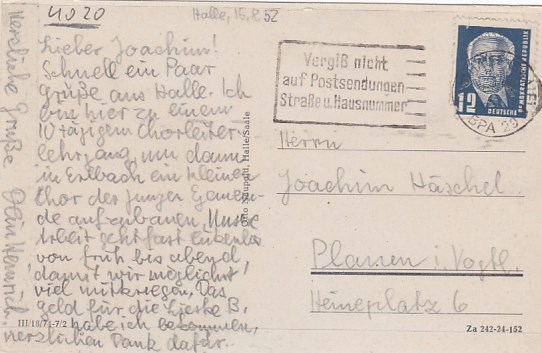 4020
Halle, 15.8.52
Lieber Joachim!
Schnell ein Paar
Grüße aus Halle. Ich
bin hier zu einem
10 tägigen Chorleiter-
lehrgang, um dann
in Erlbach ein kleinen
Chor der jungen Gemein-
de aufzubauen. Unsre
Arbeit geht fast
von früh bis abend,
damit wir möglichst
viel mitkriegen. Das
geld für die B.
habe ich bekommen,
herzlichen Dank dafür.
Herzliche Grüße Dein Heinrich.
III/18/73-7/2
Halle/Saale
Vergiß nicht
auf Postsendungen
Straße u. Hausnummer
12
DEUTSCHE DEMOKRATISCHE REPUBLIK
Herrn
Joachim Häschel
Plauen i. Vogtl.
Heineplatz 6
Za 242-24-152